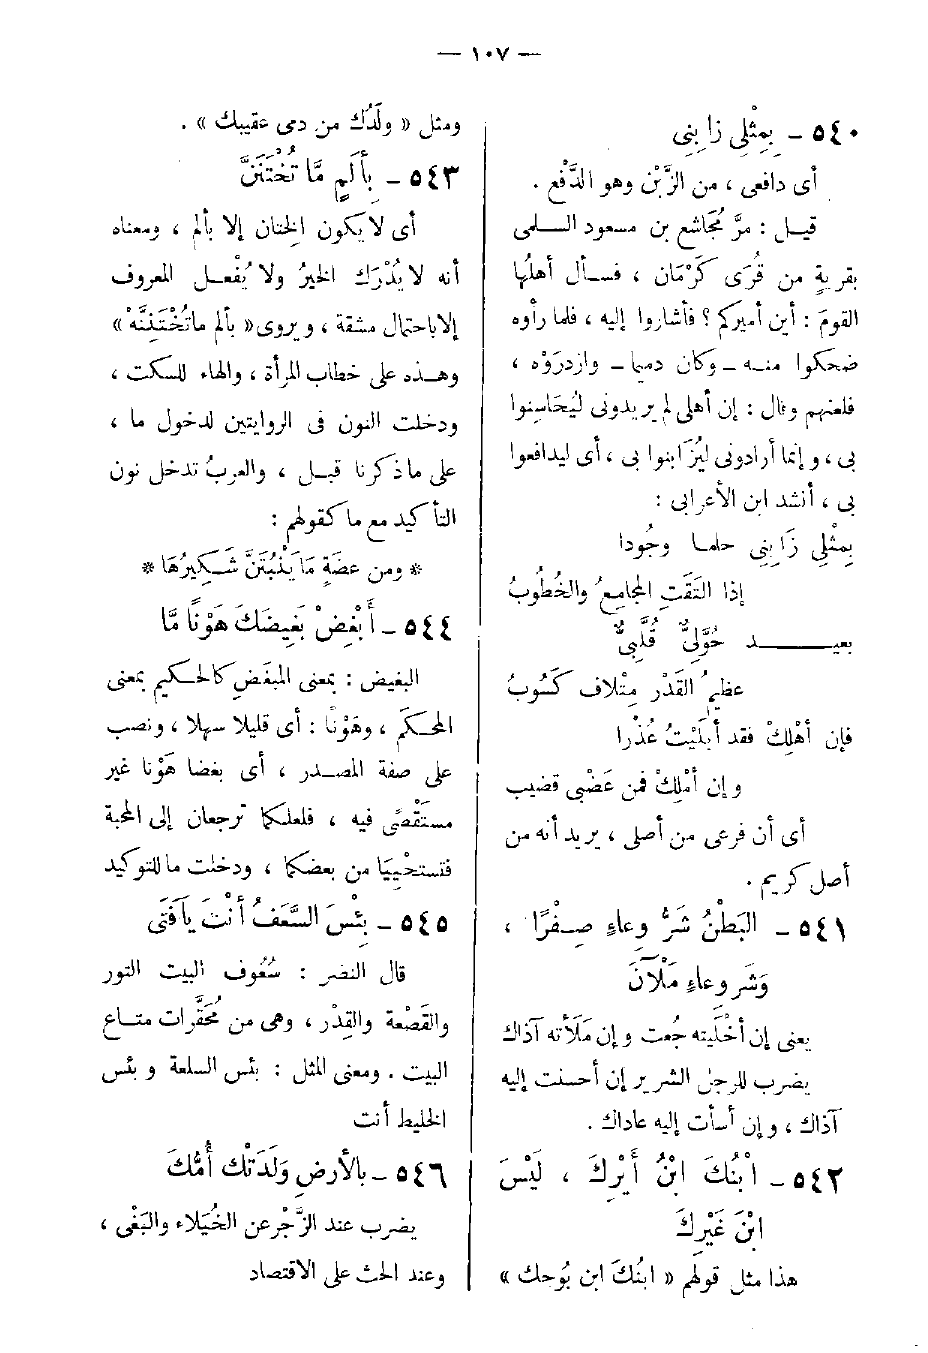 — ١٠٧ —
٥٤٠ – بِمِثْلِى زَابِنِى
أى دافعى ، من الزَّبْن وهو الدَّفْع .
قيل : مرَّ مُجَاشع بن مسعود السلمى
بقرية من قُرَى كَرْمَان ، فسأل أهلُها
القومَ : أين أميركم ؟ فأشاروا إليه ، فلما رأوه
ضحكوا منه – وكان دميما – وازدرَوْه ،
فلعنهم وقال : إن أهلى لم يريدونى ليُحَاسِنوا
بى ، وإنما أرادونى ليُزَابنوا بى ، أى ليدافعوا
بى ، أنشد ابن الأعرابى :
بِمثْلِى زَابِنِى حلما وجُودا
إذا التَقَتِ المجامِعُ والخُطُوبُ
بعيد حُوَّلِىٌّ قُلَّبِىٌّ
عظيمُ القَدْر مِتْلاف كَسُوبُ
فإن أهْلِكْ فقد أبلَيْتُ عُذْرا
وإن أمْلِكْ فمن عَضْبى قضيب
أى أن فرعى من أصلى ، يريد أنه من
أصل كريم .
٥٤١ – البَطْنُ شَرُّ وِعاءٍ صِفْرًا ،
وَشَر وعاءٍ مَلْآنَ
يعنى إن أخْلَيته جُعت وإن مَلَأته آذاك
يضرب للرجل الشرير إن أحسنت إليه
آذاك ، وإن أسأت إليه عاداك .
٥٤٢ – ابْنُكَ ابْنُ أَيْرِكَ ، لَيْسَ
ابْنَ غَيْرِكَ
هذا مثل قولهم « ابنُكَ ابن بُوحك »
ومثل « ولَدُك من دمى عقيبك » .
٥٤٣ – بِأَلَمٍ مَّا تُخْتَنَنَّ
أى لا يكون الختان إلا بألم ، ومعناه
أنه لا يُدْرَك الخيرُ ولا يُفْعل المعروف
إلا باحتمال مشقة ، ويروى « بألم ما تُخْتَنِنَّهْ »
وهذه على خطاب المرأة ، والهاء للسكت ،
ودخلت النون فى الروايتين لدخول ما ،
على ما ذكرنا قبل ، والعربُ تدخل نون
التأكيد مع ما كقولهم :
* ومن عضَةٍ مَا يَنْبُتَنَّ شَكِيرُهَا *
٥٤٤ – أَبْغِضْ بَغِيضَكَ هَوْنًا مَّا
البغيض : بمعنى المبغَضِ كالحكيم بمعنى
المحكَم ، وهَوْنًا : أى قليلا سهلا ، ونصب
على صفة المصدر ، أى بغضا هَوْنا غير
مستَقْصًى فيه ، فلعلكما ترجعان إلى المحبة
فتستحْيِيَا من بعضكما ، ودخلت ما للتوكيد
٥٤٥ – بِئْسَ السَّعَفُ أنْتَ يَافَتَى
قال النضر : سُعُوف البيت التور
والقَصْعة والقِدْر ، وهى من مُحَقَّرات متاع
البيت . ومعنى المثل : بئس السلعة وبئس
الخليط أنت
٥٤٦ – بالأَرضِ وَلَدَتْكَ أُمُّكَ
يضرب عند الزَّجْر عن الخُيَلاء والبَغْى ،
وعند الحث على الاقتصاد